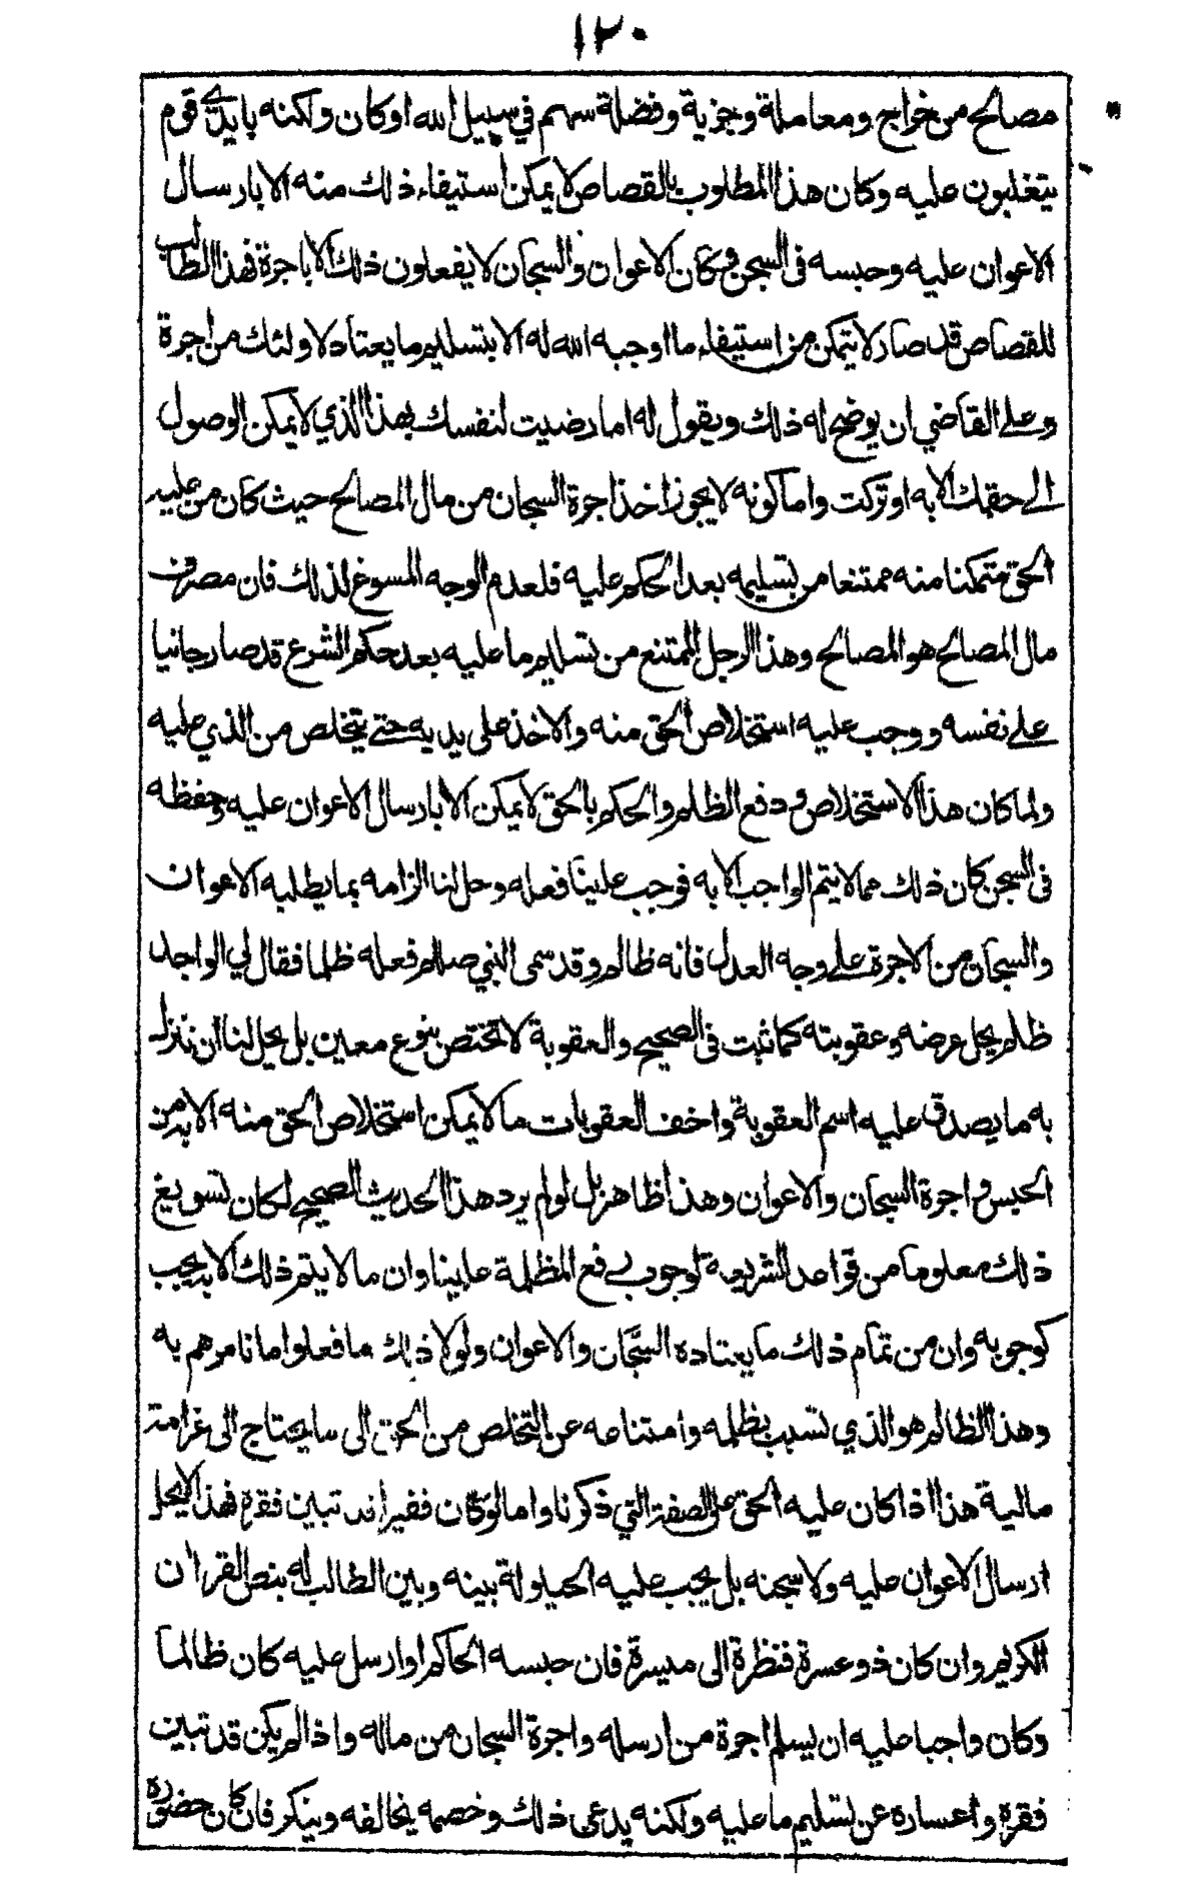 ١٢٠
مصالح من خراج ومعاملة وجزية وفضلة سهم في سبيل الله او كان ولكنه بايدي قوم
يتغلبون عليه وكان هذا المطلوب بالقصاص لا يمكن استيفاء ذلك منه الا بارسال
الاعوان عليه وحبسه فى السجن وكان الاعوان والسجان لا يفعلون ذلك الا باجرة فهذا الطالب
للقصاص قد صار لا يتمكن من استيفاء ما اوجبه الله له الا بتسليم ما يعتاد لاولئك من اجرة
وعلى القاضي ان يوضح له ذلك ويقول له اما رضيت لنفسك بهذا الذي لا يمكن الوصول
الى حقك الا به او تركت واما كونه لا يجوز اخذ اجرة السجان من مال المصالح حيث كان من عليه
الحق متمكنا منه ممتنعا من تسليمه بعد الحكم عليه فلعدم الوجه المسوغ لذلك فان مصرف
مال المصالح هو المصالح وهذا الرجل الممتنع من تسليم ما عليه بعد حكم الشرع قد صار جانيا
على نفسه ووجب عليه استخلاص الحق منه والاخذ على يديه حتى يتخلص من الذي عليه
ولما كان هذا الاستخلاص ودفع الظلم والحكم بالحق لا يمكن الا بارسال الاعوان عليه وحفظه
فى السجن كان ذلك مما لا يتم الواجب الا به فوجب علينا فعله وحل لنا الزامه بما يطلبه الاعوان
والسجان من الاجرة على وجه العدل فانه ظالم وقد سمى النبي صللم فعله ظلما فقال لي الواجد
ظلم يحل عرضه وعقوبته كما ثبت فى الصحيح والعقوبة لا تختص بنوع معين بل يحل لنا ان ننزل
به ما يصدق عليه اسم العقوبة واخف العقوبات ما لا يمكن استخلاص الحق منه الا به من
الحبس واجرة السجان والاعوان وهذا ظاهر بل لو لم يرد هذا الحديث الصحيح لكان تسويغ
ذلك معلوما من قواعد الشريعة لوجوب رفع المظلمة علينا وان ما لا يتم ذلك الا به يجب
كوجوبه وان من تمام ذلك ما يعتاده السجَّان والاعوان ولولا ذلك ما فعلوا ما نامرهم به
وهذا الظالم هو الذي تسبب بظلمه وامتناعه عن التخلص من الحق الى ما يحتاج الى غرامة
مالية هذا اذا كان عليه الحق على الصفة التي ذكرنا واما لو كان فقيرا قد تبين فقره فهذا لا يحل
ارسال الاعوان عليه ولا سجنه بل يجب عليه الحيلولة بينه وبين الطالب له بنص القران
الكريم وان كان ذو عسرة فنظرة الى ميسرة فان حبسه الحاكم او ارسل عليه كان ظالما
وكان واجبا عليه ان يسلم اجرة من ارسله واجرة السجان من ماله واذا لم يكن قد تبين
فقره واعساره عن تسليم ما عليه ولكنه يدعى ذلك وخصمه يخالفه وينكر فان كان حضوره